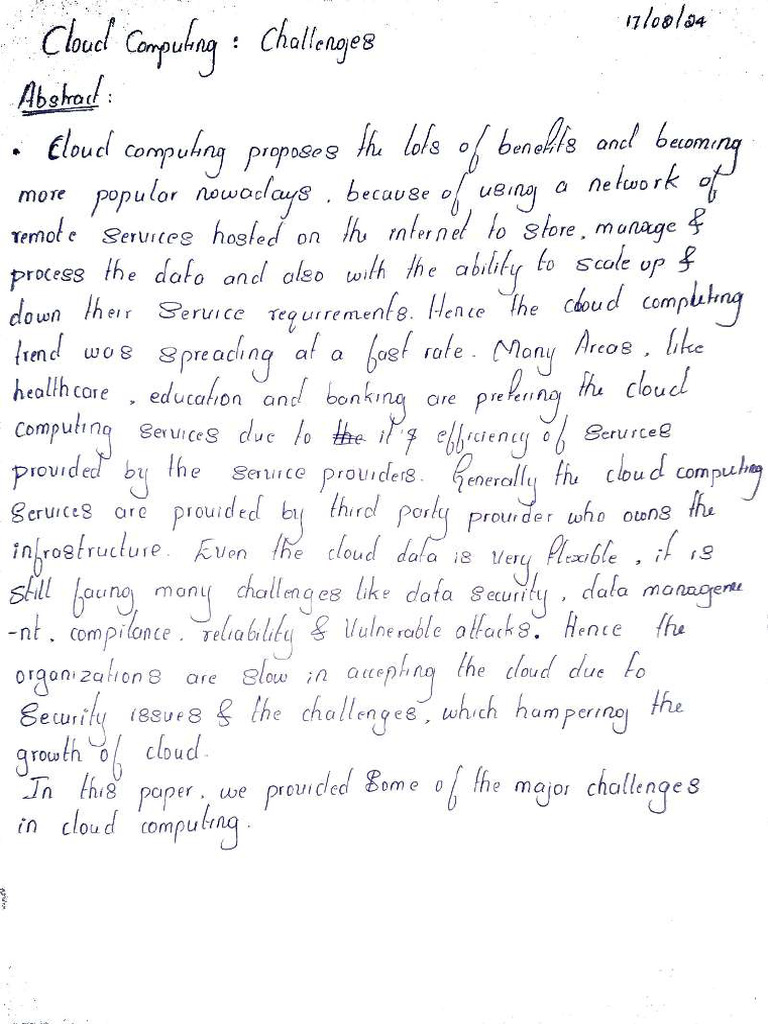 17/08/24
Cloud Computing : Challenges
Abstract :
• Cloud computing proposes the lots of benefits and becoming
more popular nowadays, because of using a network of
remote services hosted on the internet to store, manage &
process the data and also with the ability to scale up &
down their service requirements. Hence the cloud computing
trend was spreading at a fast rate. Many Areas, like
healthcare, education and banking are prefering the cloud
computing services due to the it's efficiency of services
provided by the service providers. Generally the cloud computing
services are provided by third party provider who owns the
infrastructure. Even the cloud data is very flexible, it is
still facing many challenges like data security, data manageme
-nt, compilance, reliability & Vulnerable attacks. Hence the
organizations are slow in accepting the cloud due to
Security issues & the challenges, which hampering the
growth of cloud.
In this paper, we provided Some of the major challenges
in cloud computing.